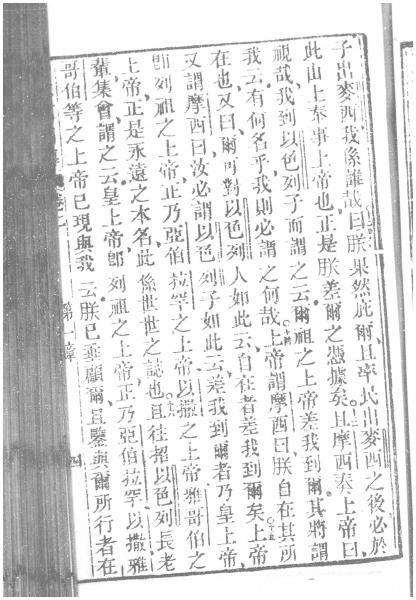 子出麥西我係誰哉曰朕果然庇爾且率民出麥西之後必於
此山上奉事上帝也正是朕差爾之憑據矣且摩西奏上帝曰
視哉我到以色列子而謂之云爾祖之上帝差我到爾其將謂
我云有何名乎我則必謂之何哉上帝謂摩西曰朕自在其所
在也又曰爾可對以色列人如此云自在者差我到爾矣上帝
又謂摩西曰汝必謂以色列子如此云差我到爾者乃皇上帝
卽列祖之上帝正乃亞伯拉罕之上帝以撒之上帝雅哥伯之
上帝正是永遠之本名此係世世之誌也且往招以色列長老
輩集會謂之云皇上帝卽列祖之上帝正乃亞伯拉罕以撒雅
哥伯等之上帝已現與我云朕已垂顧爾且鑒與爾所行者在
卷二 第一章 四